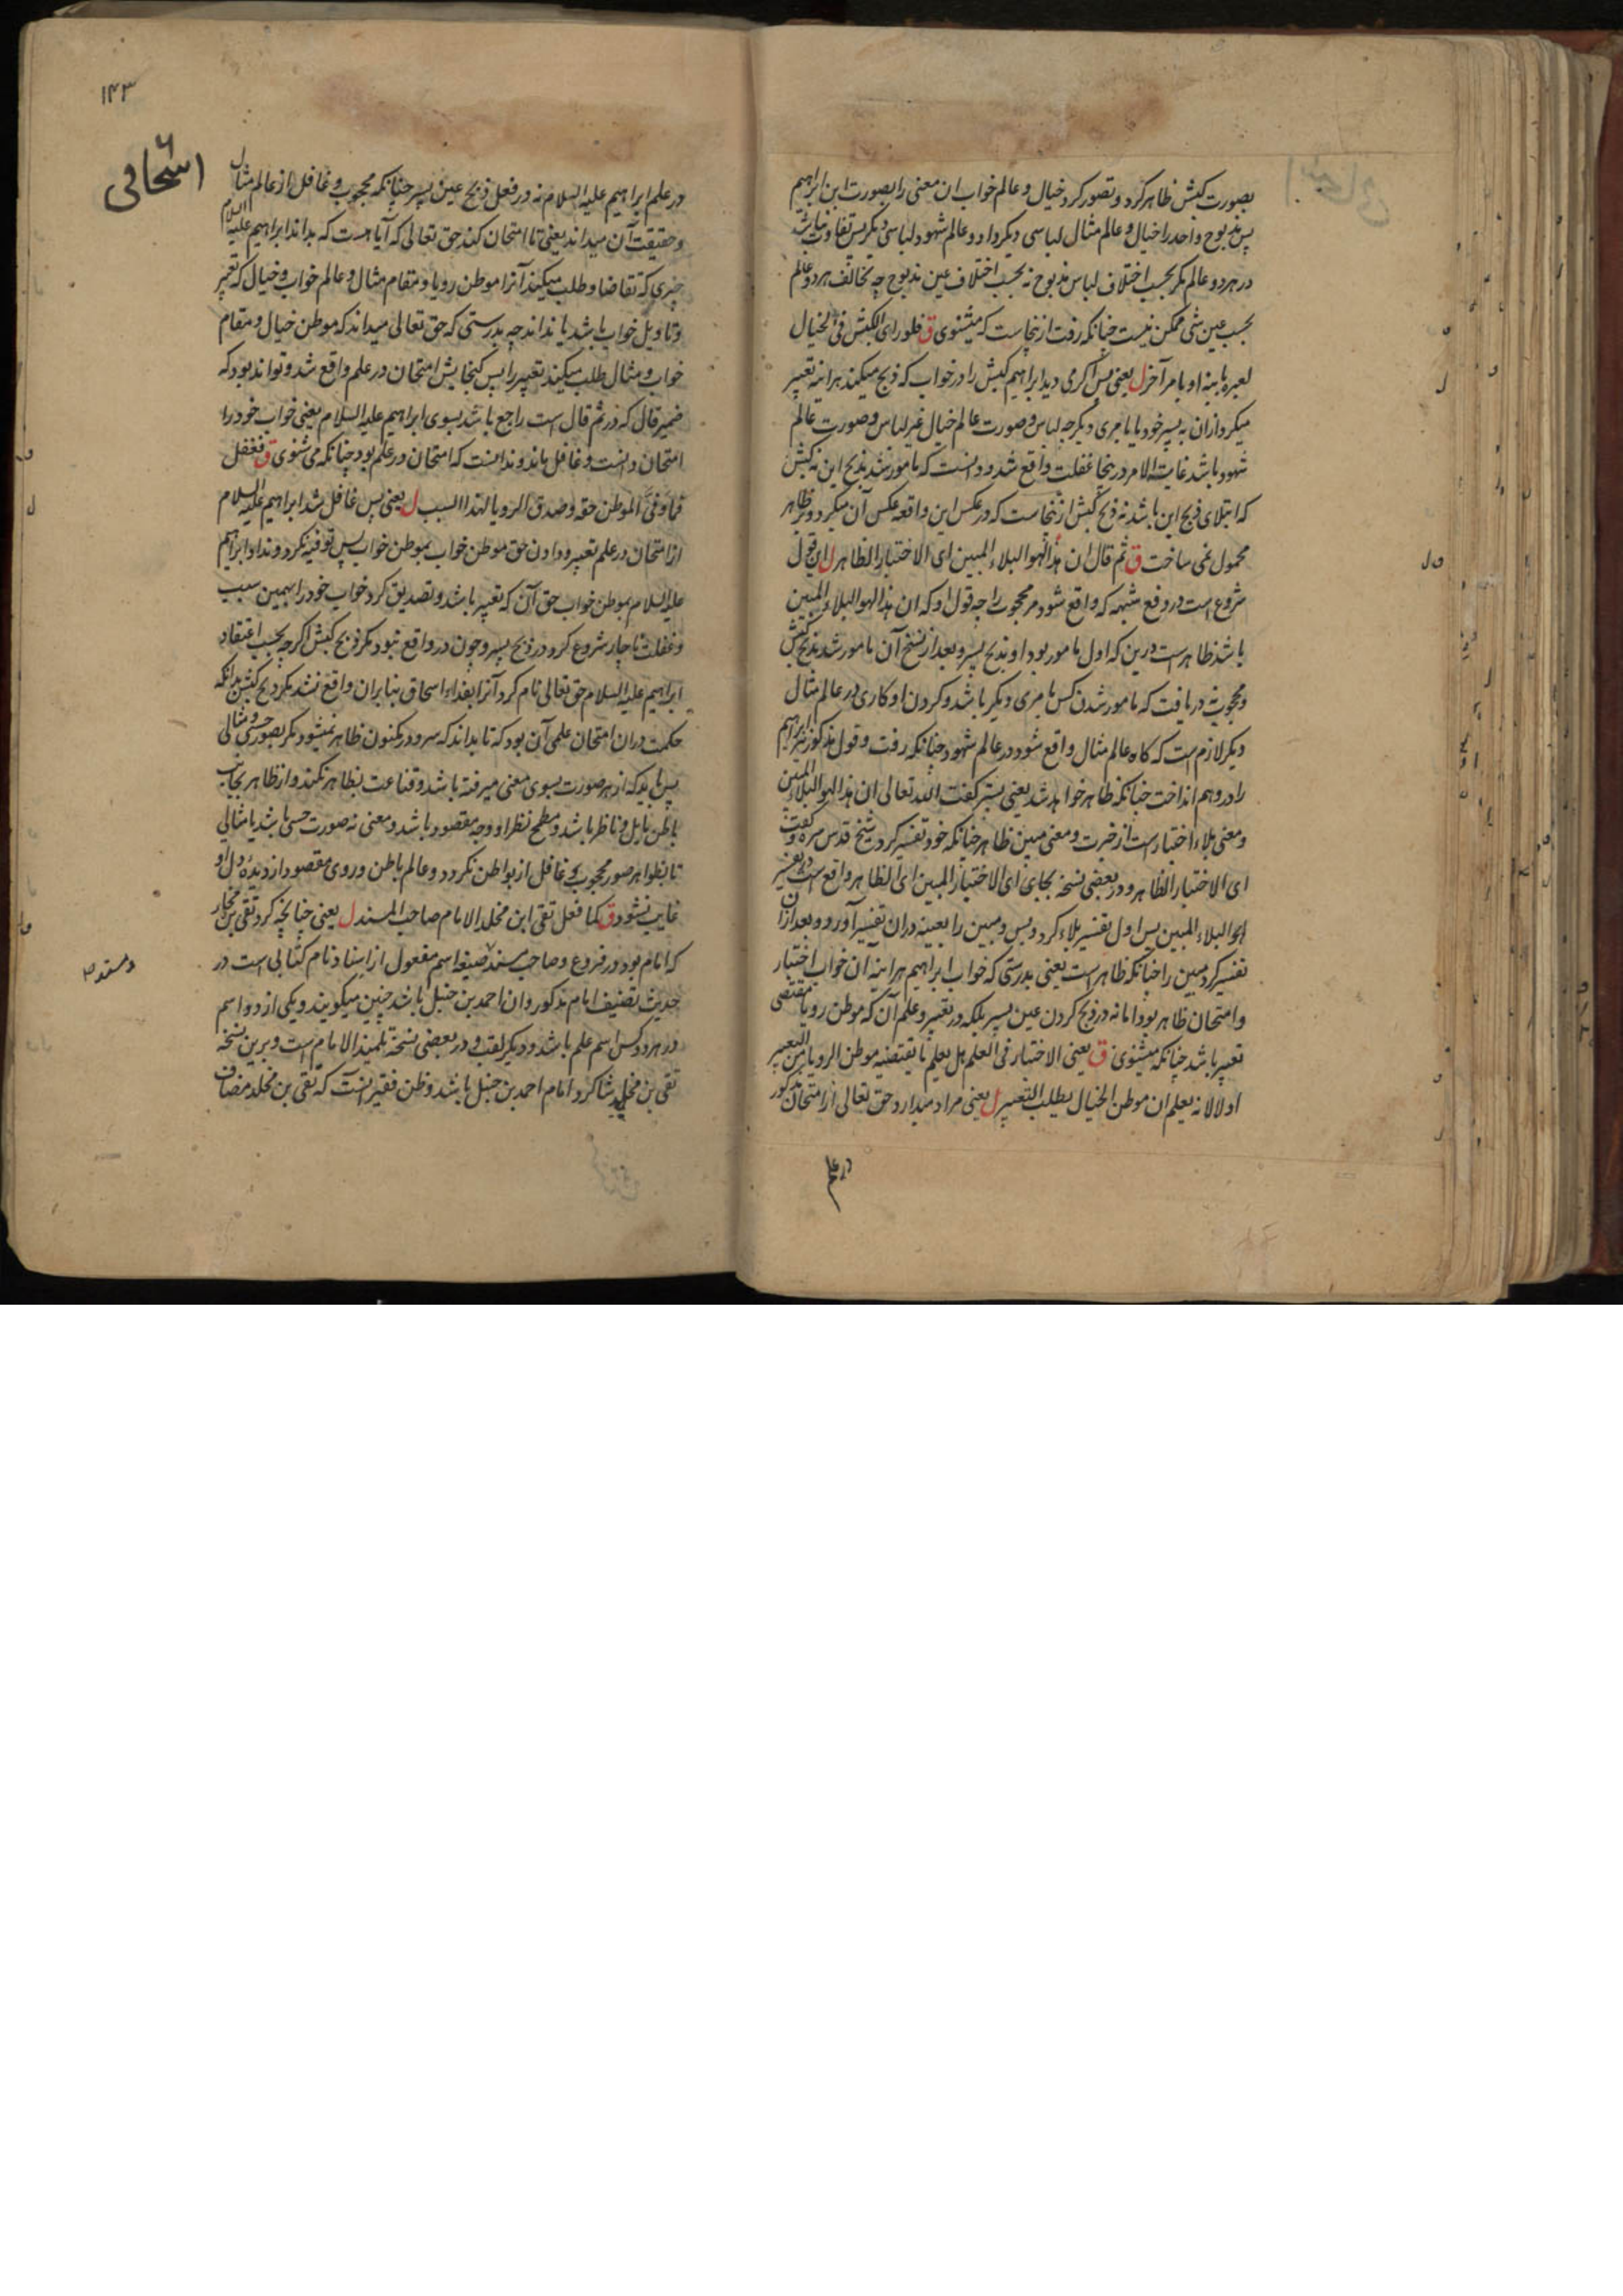 بصورت کبش ظاهر کرد و تصور کرد خیال و عالم خواب ان معنی را بصورت ابن ابراهیم
پس مذبوح واحد را خیال و عالم مثال لباسی دیگر داد و عالم شهود لباسی دیگر پس تفاوت نباشد
در هر دو عالم مکر بحسب اختلاف لباس مذبوح نه بحسب اختلاف عین مذبوح چه تخالف هر دو عالم
بحسب عین شی ممکن نیست چنانکه رفت ازینجاست که میشنوی ق فلو رای الکبش فی الخیال
لعبره بابنه او بامر آخر ل یعنی پس اکر می دید ابراهیم کبش را در خواب که ذبح میکند هراینه تعبیر
میکرد ازان به پسر خود یا بامری دیکر چه لباس و صورت عالم خیال غیر لباس و صورت عالم
شهود باشد غایت الامر درینجا غفلت واقع شد و دانست که مامور شد بذبح ابن نه کبش
که ابتلای ذبح ابن باشد نه ذبح کبش ازینجاست که در عکس این واقعه عکس آن میکرد و بر ظاهر
محمول نمی ساخت ق ثم قال ان هذا لهو البلاء المبین ای الاختبار الظاهر ل این قول
شروع است در دفع شبهه که واقع شود مر محجوب را چه قول او که ان هذا لهو البلاء المبین
باشد ظاهر است درین که اول مامور بود او بذبح پسر و بعد از نسخ آن مامور شد بذبح کبش
و محجوب دریافت که مامور شدن کس بامری دیکر باشد و کردن او کاری در عالم مثال
دیکر لازم است که کاه عالم مثال واقع شود در عالم شهود چنانکه رفت و قول مذکور مر ابراهیم
را در وهم انداخت چنانکه ظاهر خواهد شد یعنی پستر کفت الله تعالی ان هذا لهو البلاء المبین
و معنی بلاء اختبار است از خبرت و معنی مبین ظاهر چنانکه خود تفسیر کرد شیخ قدس سره و کفت
ای الاختبار الظاهر و در بعضی نسخه بجای ای الاختبار المبین ای الظاهر واقع است در تفسیر
لهو البلاء المبین پس اول تفسیر بلاء کرد و بس و مبین را بعینه دران تفسیر آورد و بعد ازان
تفسیر کرد مبین را چنانکه ظاهر است یعنی بدرستی که خواب ابراهیم هراینه ان خواب اختبار
و امتحان ظاهر بود اما نه در ذبح کردن عین پسر بلکه در تعبیر و علم آن که موطن رویا مقتضی
تعبیر باشد چنانکه میشنوی ق یعنی الاختبار فی العلم هل یعلم ما یقتضیه موطن الرویا من التعبیر
او لا لانه یعلم ان موطن الخیال یطلب التعبیر ل یعنی مراد میدارد حق تعالی از امتحان مذکور
در علم
۱۴۳
اسحاقی ۶
در علم ابراهیم علیه السلام نه در فعل ذبح عین پسر چنانکه محجوب و غافل از عالم مثال
و حقیقت آن میداند یعنی تا امتحان کند حق تعالی که آیا هست که بداند ابراهیم علیه السلام
چیزی که تقاضا و طلب میکند آنرا موطن رویا و مقام مثال و عالم خواب و خیال که تعبیر
و تاویل خواب باشد یا نداند چه بدرستی که حق تعالی میداند که موطن خیال و مقام
خواب و مثال طلب میکند تعبیر را پس کنجایش امتحان در علم واقع شد و تواند بود که
ضمیر قال که در ثم قال است راجع باشد بسوی ابراهیم علیه السلام یعنی خواب خود را
امتحان دانست و غافل ماند و ندانست که امتحان در علم بود چنانکه می شنوی ق فغفل
فما وفی الموطن حقه و صدق الرویا لهذا السبب ل یعنی پس غافل شد ابراهیم علیه السلام
از امتحان در علم تعبیر و دادن حق موطن خواب بموطن خواب پس توفیه نکرد و نداد ابراهیم
علیه السلام بموطن خواب حق آن که تعبیر باشد و تصدیق کرد خواب خود را بهمین سبب
و غفلت ناچار شروع کرد در ذبح پسر و چون در واقع نبود مکر ذبح کبش اکرچه بحسب اعتقاد
ابراهیم علیه السلام حق تعالی نام کرد آنرا بفداء اسحاق بنابران واقع نشد مکر ذبح کبش بدانکه
حکمت دران امتحان علمی آن بود که تا بداند که سر و در مکنون ظاهر نمیشود مکر بصور حسی و مثالی
پس باید که از هر صورت بسوی معنی میرفته باشد و قناعت بظاهر نکند و از ظاهر بجانب
باطن مایل و ناظر باشد و مطمح نظر او وجه مقصود باشد و معنی نه صورت حسی باشد یا مثالی
تا بظواهر صور محجوب و غافل از بواطن نکردد و عالم باطن و روی مقصود از دیده دل او
غایب نشود ق کما فعل تقی ابن مخلد الامام صاحب المسند ل یعنی چنانچه کرد تقی بن مخلد
که امام بود در فروع و صاحب مسند صیغه اسم مفعول از اسناد نام کتابی است در
و مسند ۳
حدیث تصنیف امام مذکور و ان احمد بن حنبل باشد چنین میکویند و یکی از دو اسم
در هر دو کس اسم علم باشد و دیکر لقب و در بعضی نسخه تلمیذ الامام است و برین نسخه
تقی بن مخلد شاکرد امام احمد بن حنبل باشد و ظن فقیر آنست که تقی بن مخلد مضاف